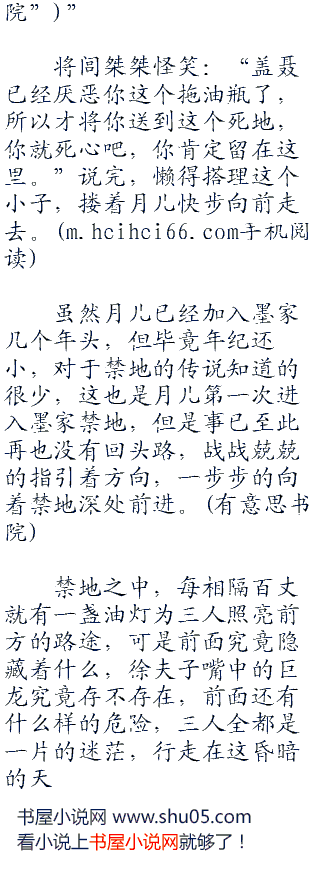 院”)”
将闾桀桀怪笑：“盖聂
已经厌恶你这个拖油瓶了，
所以才将你送到这个死地，
你就死心吧，你肯定留在这
里。”说完，懒得搭理这个
小子，搂着月儿快步向前走
去。(m.hcihci66.com手机阅
读)
虽然月儿已经加入墨家
几个年头，但毕竟年纪还
小，对于禁地的传说知道的
很少，这也是月儿第一次进
入墨家禁地，但是事已至此
再也没有回头路，战战兢兢
的指引着方向，一步步的向
着禁地深处前进。(有意思书
院)
禁地之中，每相隔百丈
就有一盏油灯为三人照亮前
方的路途，可是前面究竟隐
藏着什么，徐夫子嘴中的巨
龙究竟存不存在，前面还有
什么样的危险，三人全都是
一片的迷茫，行走在这昏暗
的天
书屋小说网 www.shu05.com
看小说上书屋小说网就够了！